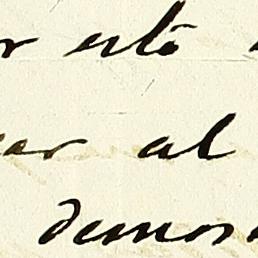 r esto
ar al
demos